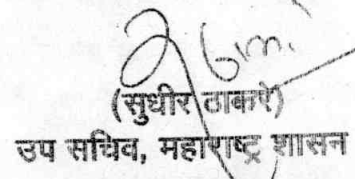 (सुधीर ठाकरे)
उप सचिव, महाराष्ट्र शासन